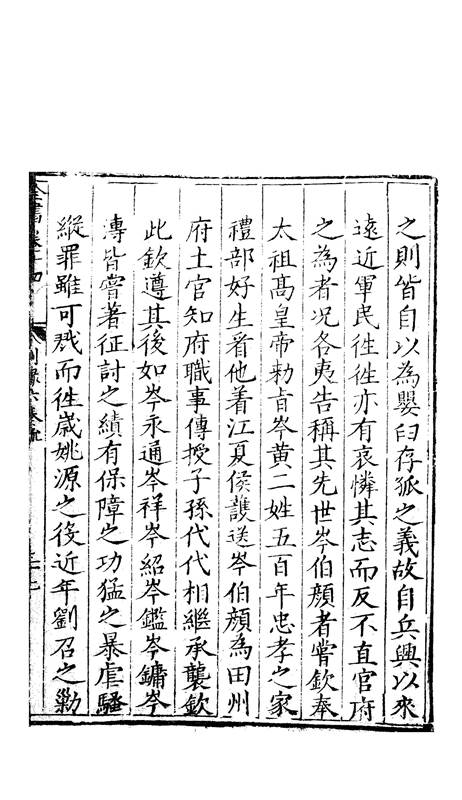 之則皆自以為嬰臼存孤之義故自兵興以來
遠近軍民徃徃亦有哀憐其志而反不直官府
之為者况各夷告稱其先世岑伯顔者嘗欽奉
太祖髙皇帝勅旨岑黄二姓五百年忠孝之家
禮部好生看他着江夏侯護送岑伯顔為田州
府土官知府職事傳授子孫代代相繼承襲欽
此欽遵其後如岑永通岑祥岑紹岑鑑岑鏞岑
溥皆嘗著征討之績有保障之功猛之暴虐騷
縱罪雖可戮而徃歲姚源之役近年劉召之勦
全書卷十四